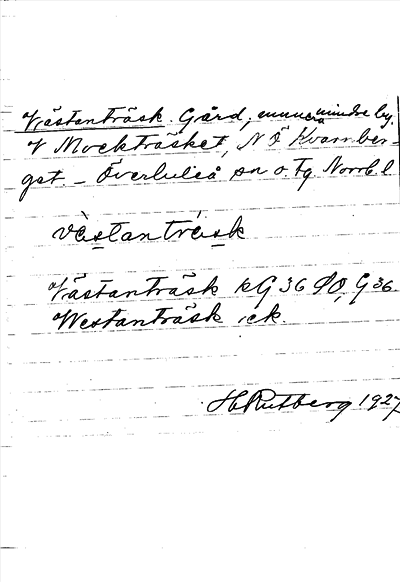 Västanträsk. Gård, numera mindre by.
V Mockträsket, N Ö Kvarnber-
get. – Överluleå sn o. tg. Norrb. l
västanträsk
Västanträsk kG 36 GO, G 36.
Westanträsk ck.
H Rutberg 1927